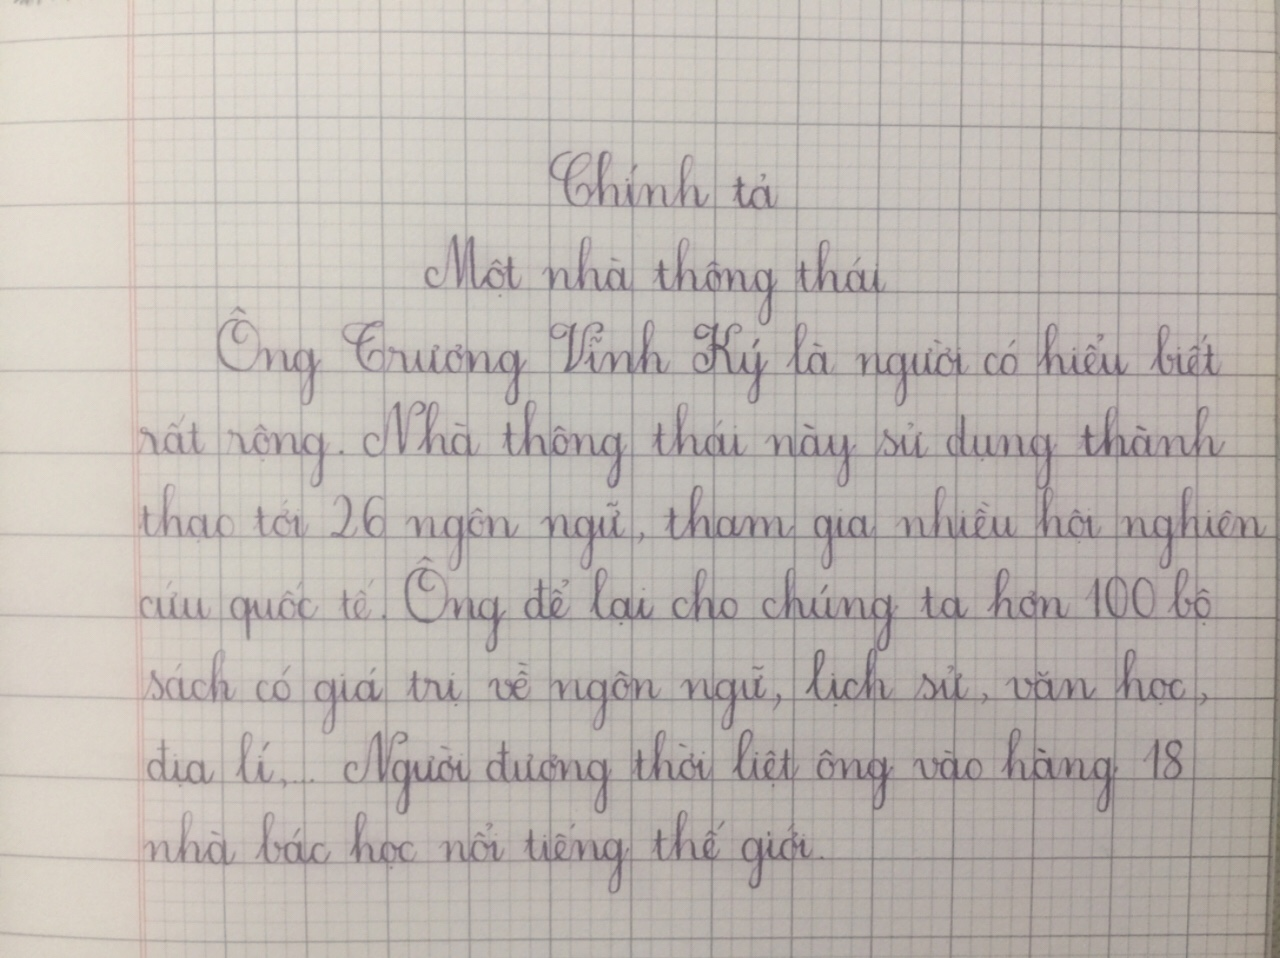 Chính tả
Một nhà thông thái
Ông Trương Vĩnh Ký là người có hiểu biết
rất rộng. Nhà thông thái này sử dụng thành
thạo tới 26 ngôn ngữ, tham gia nhiều hội nghiên
cứu quốc tế. Ông để lại cho chúng ta hơn 100 bộ
sách có giá trị về ngôn ngữ, lịch sử, văn học,
địa lí,... Người đương thời liệt ông vào hàng 18
nhà bác học nổi tiếng thế giới.